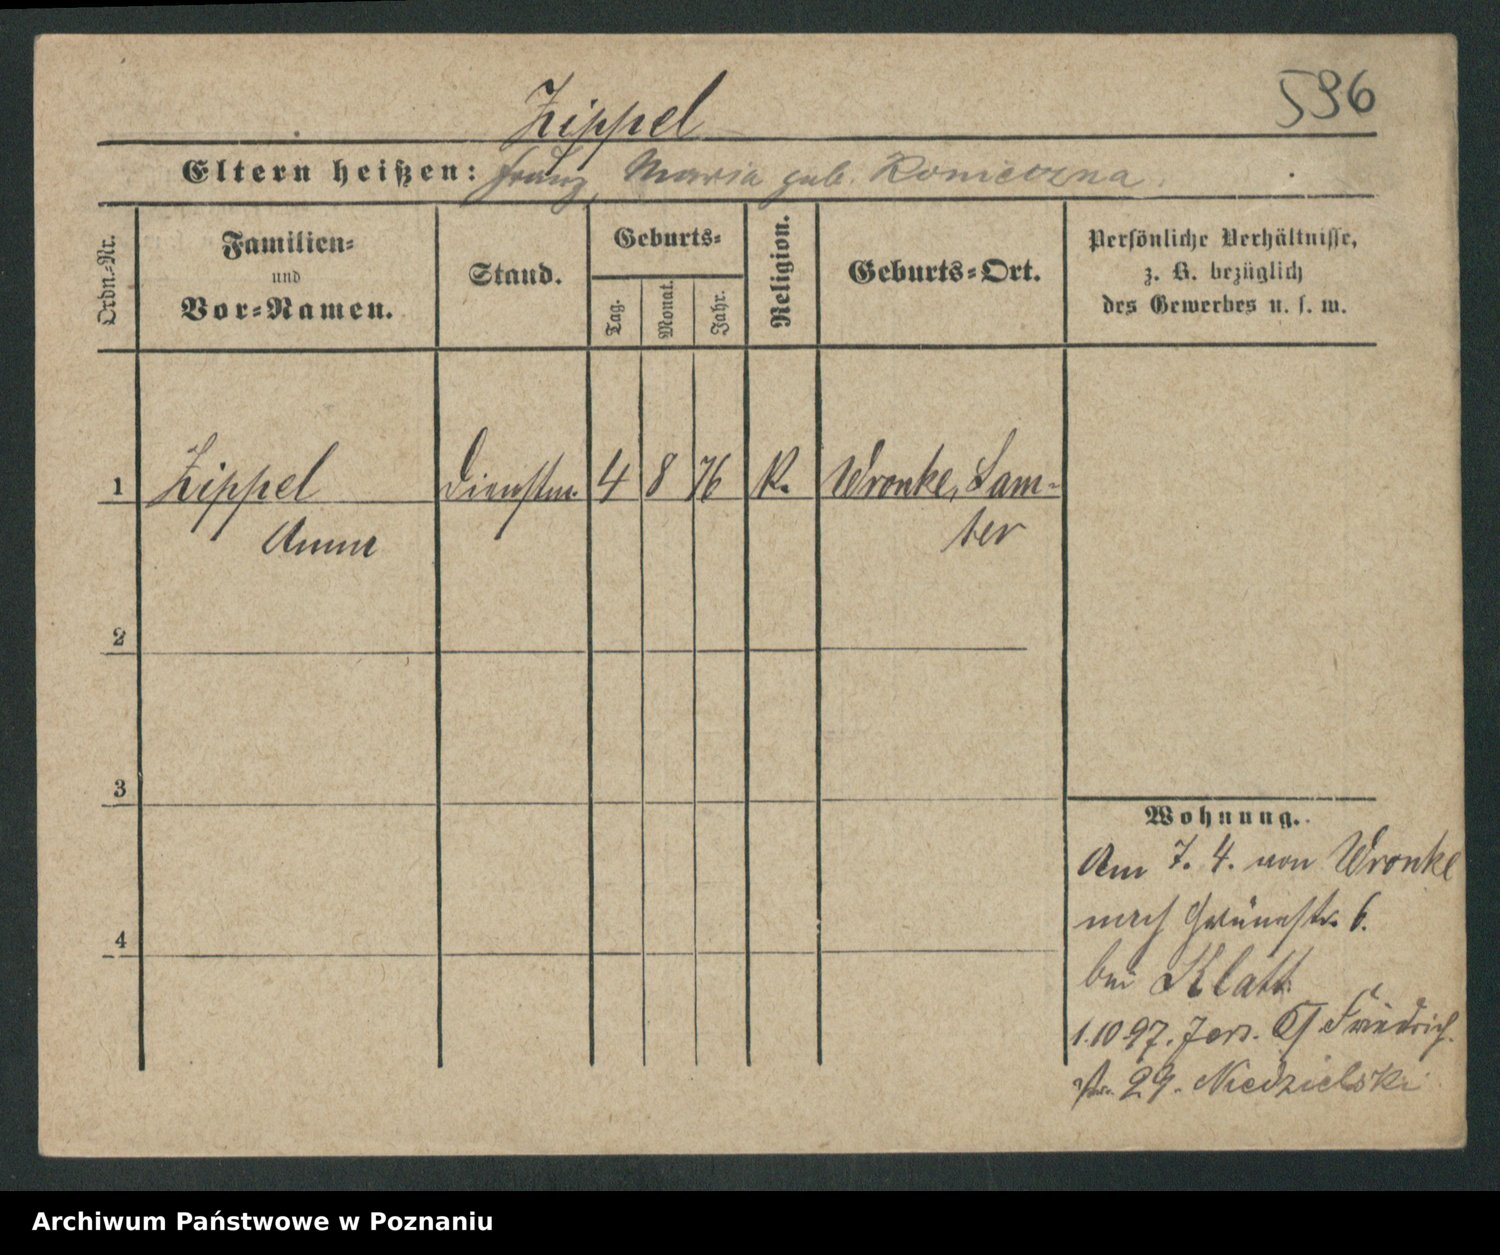 596
Zippel
Eltern heißen: Franz, Maria geb. Konieczna.
Ordn.-Nr.
Familien-
und
Vor-Namen.
Stand.
Geburts-
Tag.
Monat.
Jahr.
Religion.
Geburts-Ort.
Persönliche Verhältnisse,
z. B. bezüglich
des Gewerbes u. s. w.
1 Zippel Dienstm. 4 8 76 K. Wronke, Sam-
Anna ter
2
3
4
Wohnung.
Am 7. 4. von Wronke
nach Grünestr. 6.
bei Klatt
1.10.97. Jers. Friedrich
str. 29. Niedzielski
Archiwum Państwowe w Poznaniu